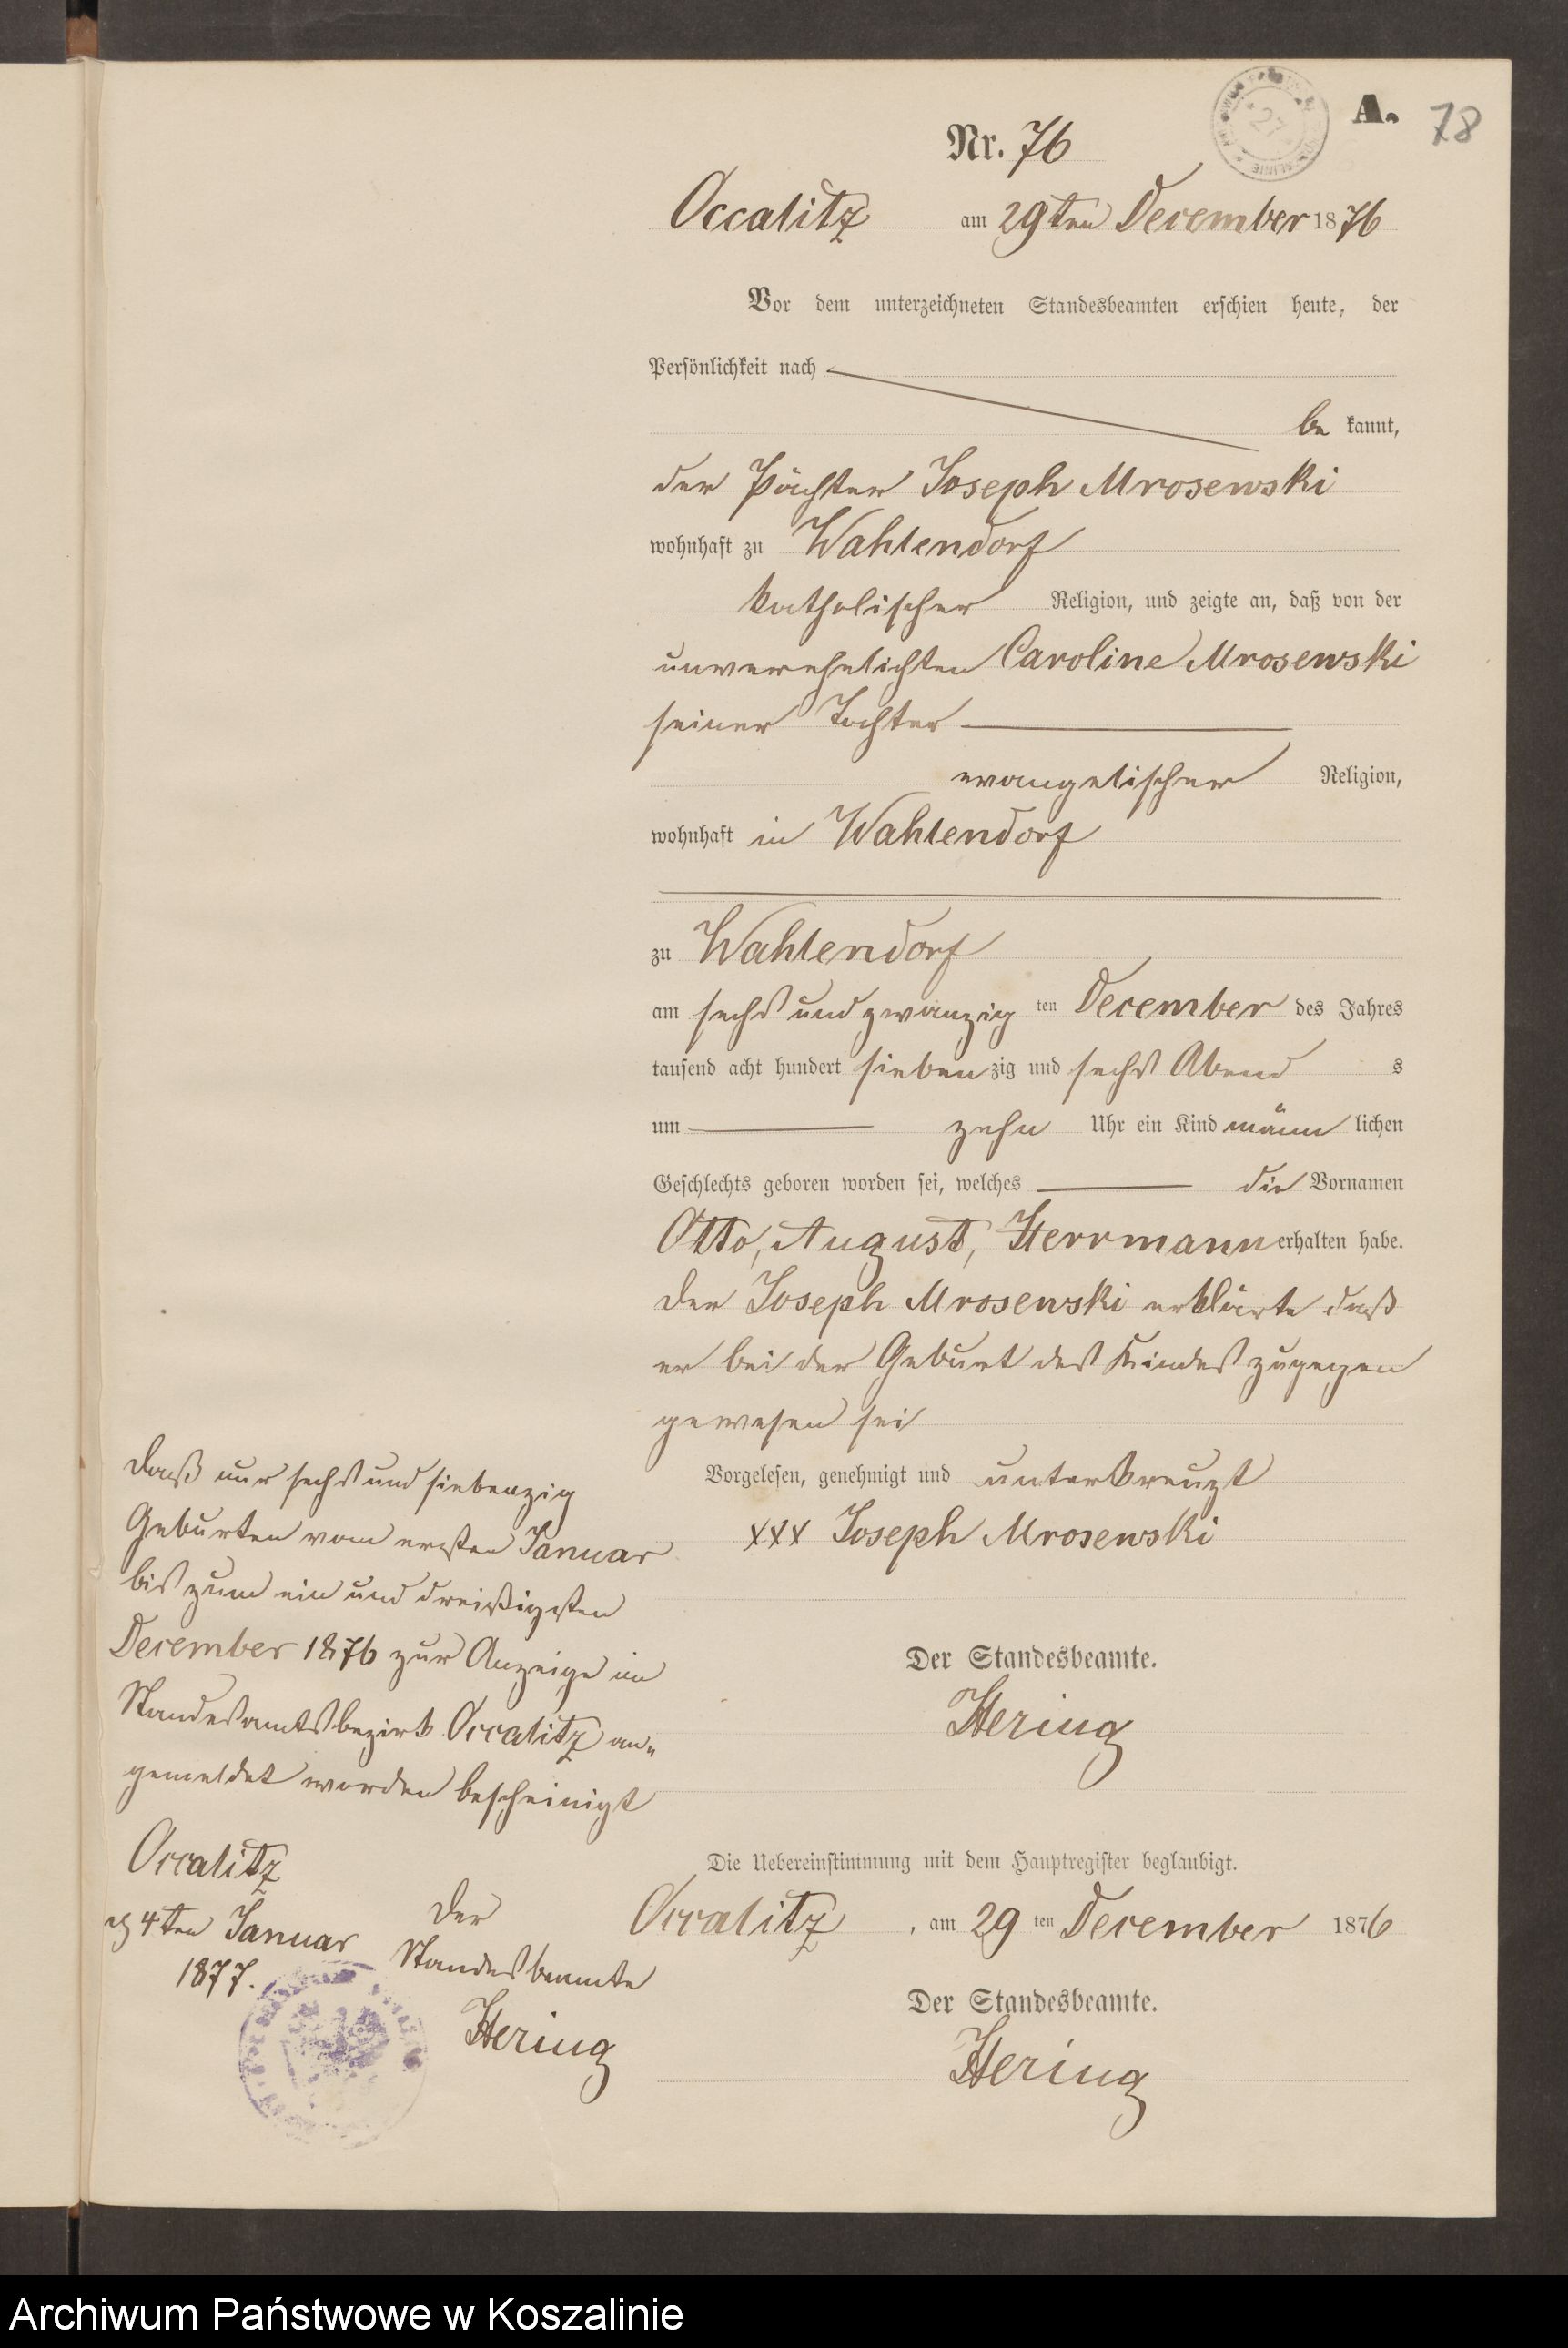 A.
78
Nr. 76
Occalitz am 29ten December 1876
Vor dem unterzeichneten Standesbeamten erschien heute, der
Persönlichkeit nach
be kannt,
der Pächter Joseph Mrosewski
wohnhaft zu Wahlendorf
katholischer Religion, und zeigte an, daß von der
unverehelichten Caroline Mrosewski
seiner Tochter
evangelischer Religion,
wohnhaft in Wahlendorf
zu Wahlendorf
am sechs und zwanzig ten December des Jahres
tausend acht hundert sieben zig und sechs Abend s
um zehn Uhr ein Kind männ lichen
Geschlechts geboren worden sei, welches die Vornamen
Otto, August, Herrmann erhalten habe.
Der Joseph Mrosewski erklärte daß
er bei der Geburt des Kindes zugegen
gewesen sei
Vorgelesen, genehmigt und unterkreuzt
xxx Joseph Mrosewski
Der Standesbeamte.
Hering
Die Uebereinstimmung mit dem Hauptregister beglaubigt.
Occalitz, am 29 ten December 1876
Der Standesbeamte.
Hering
Daß nur sechs und siebenzig
Geburten vom ersten Januar
bis zum ein und dreißigsten
December 1876 zur Anzeige im
Standesamtsbezirk Occalitz an„
gemeldet worden bescheinigt
Occalitz
4ten Januar
1877.
Der
Standesbeamte
Hering
Archiwum Państwowe w Koszalinie